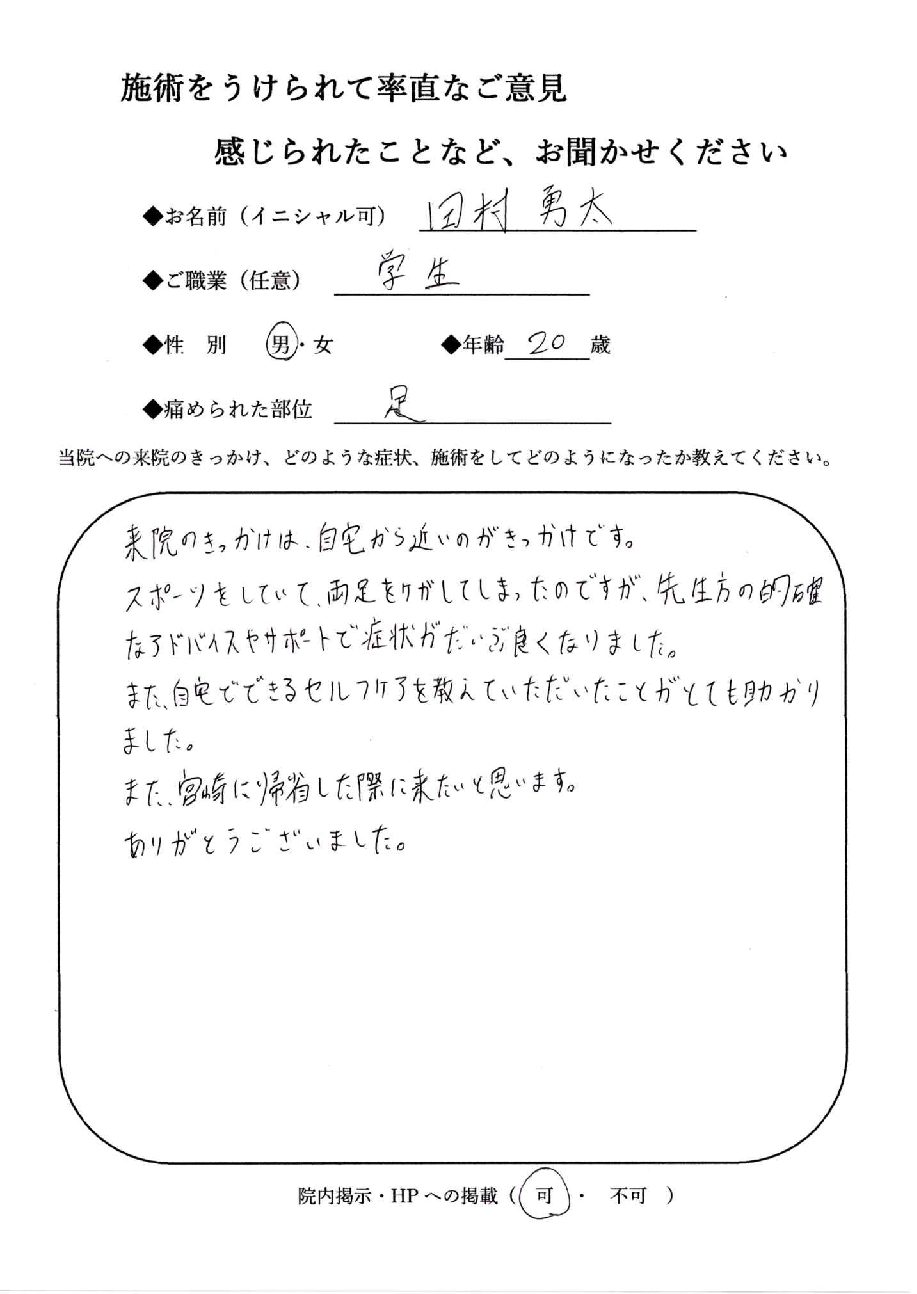 施術をうけられて率直なご意見
感じられたことなど、お聞かせください
◆お名前（イニシャル可） 田村 勇太
◆ご職業（任意） 学生
◆性 別 男・女 ◆年齢 20 歳
◆痛められた部位 足
当院への来院のきっかけ、どのような症状、施術をしてどのようになったか教えてください。
来院のきっかけは、自宅から近いのがきっかけです。
スポーツをしていて、両足をケガしてしまったのですが、先生方の的確
なアドバイスやサポートで症状がだいぶ良くなりました。
また、自宅でできるセルフケアを教えていただいたことがとても助かり
ました。
また、宮崎に帰省した際に来たいと思います。
ありがとうございました。
院内掲示・HPへの掲載（ 可 ・ 不可 ）